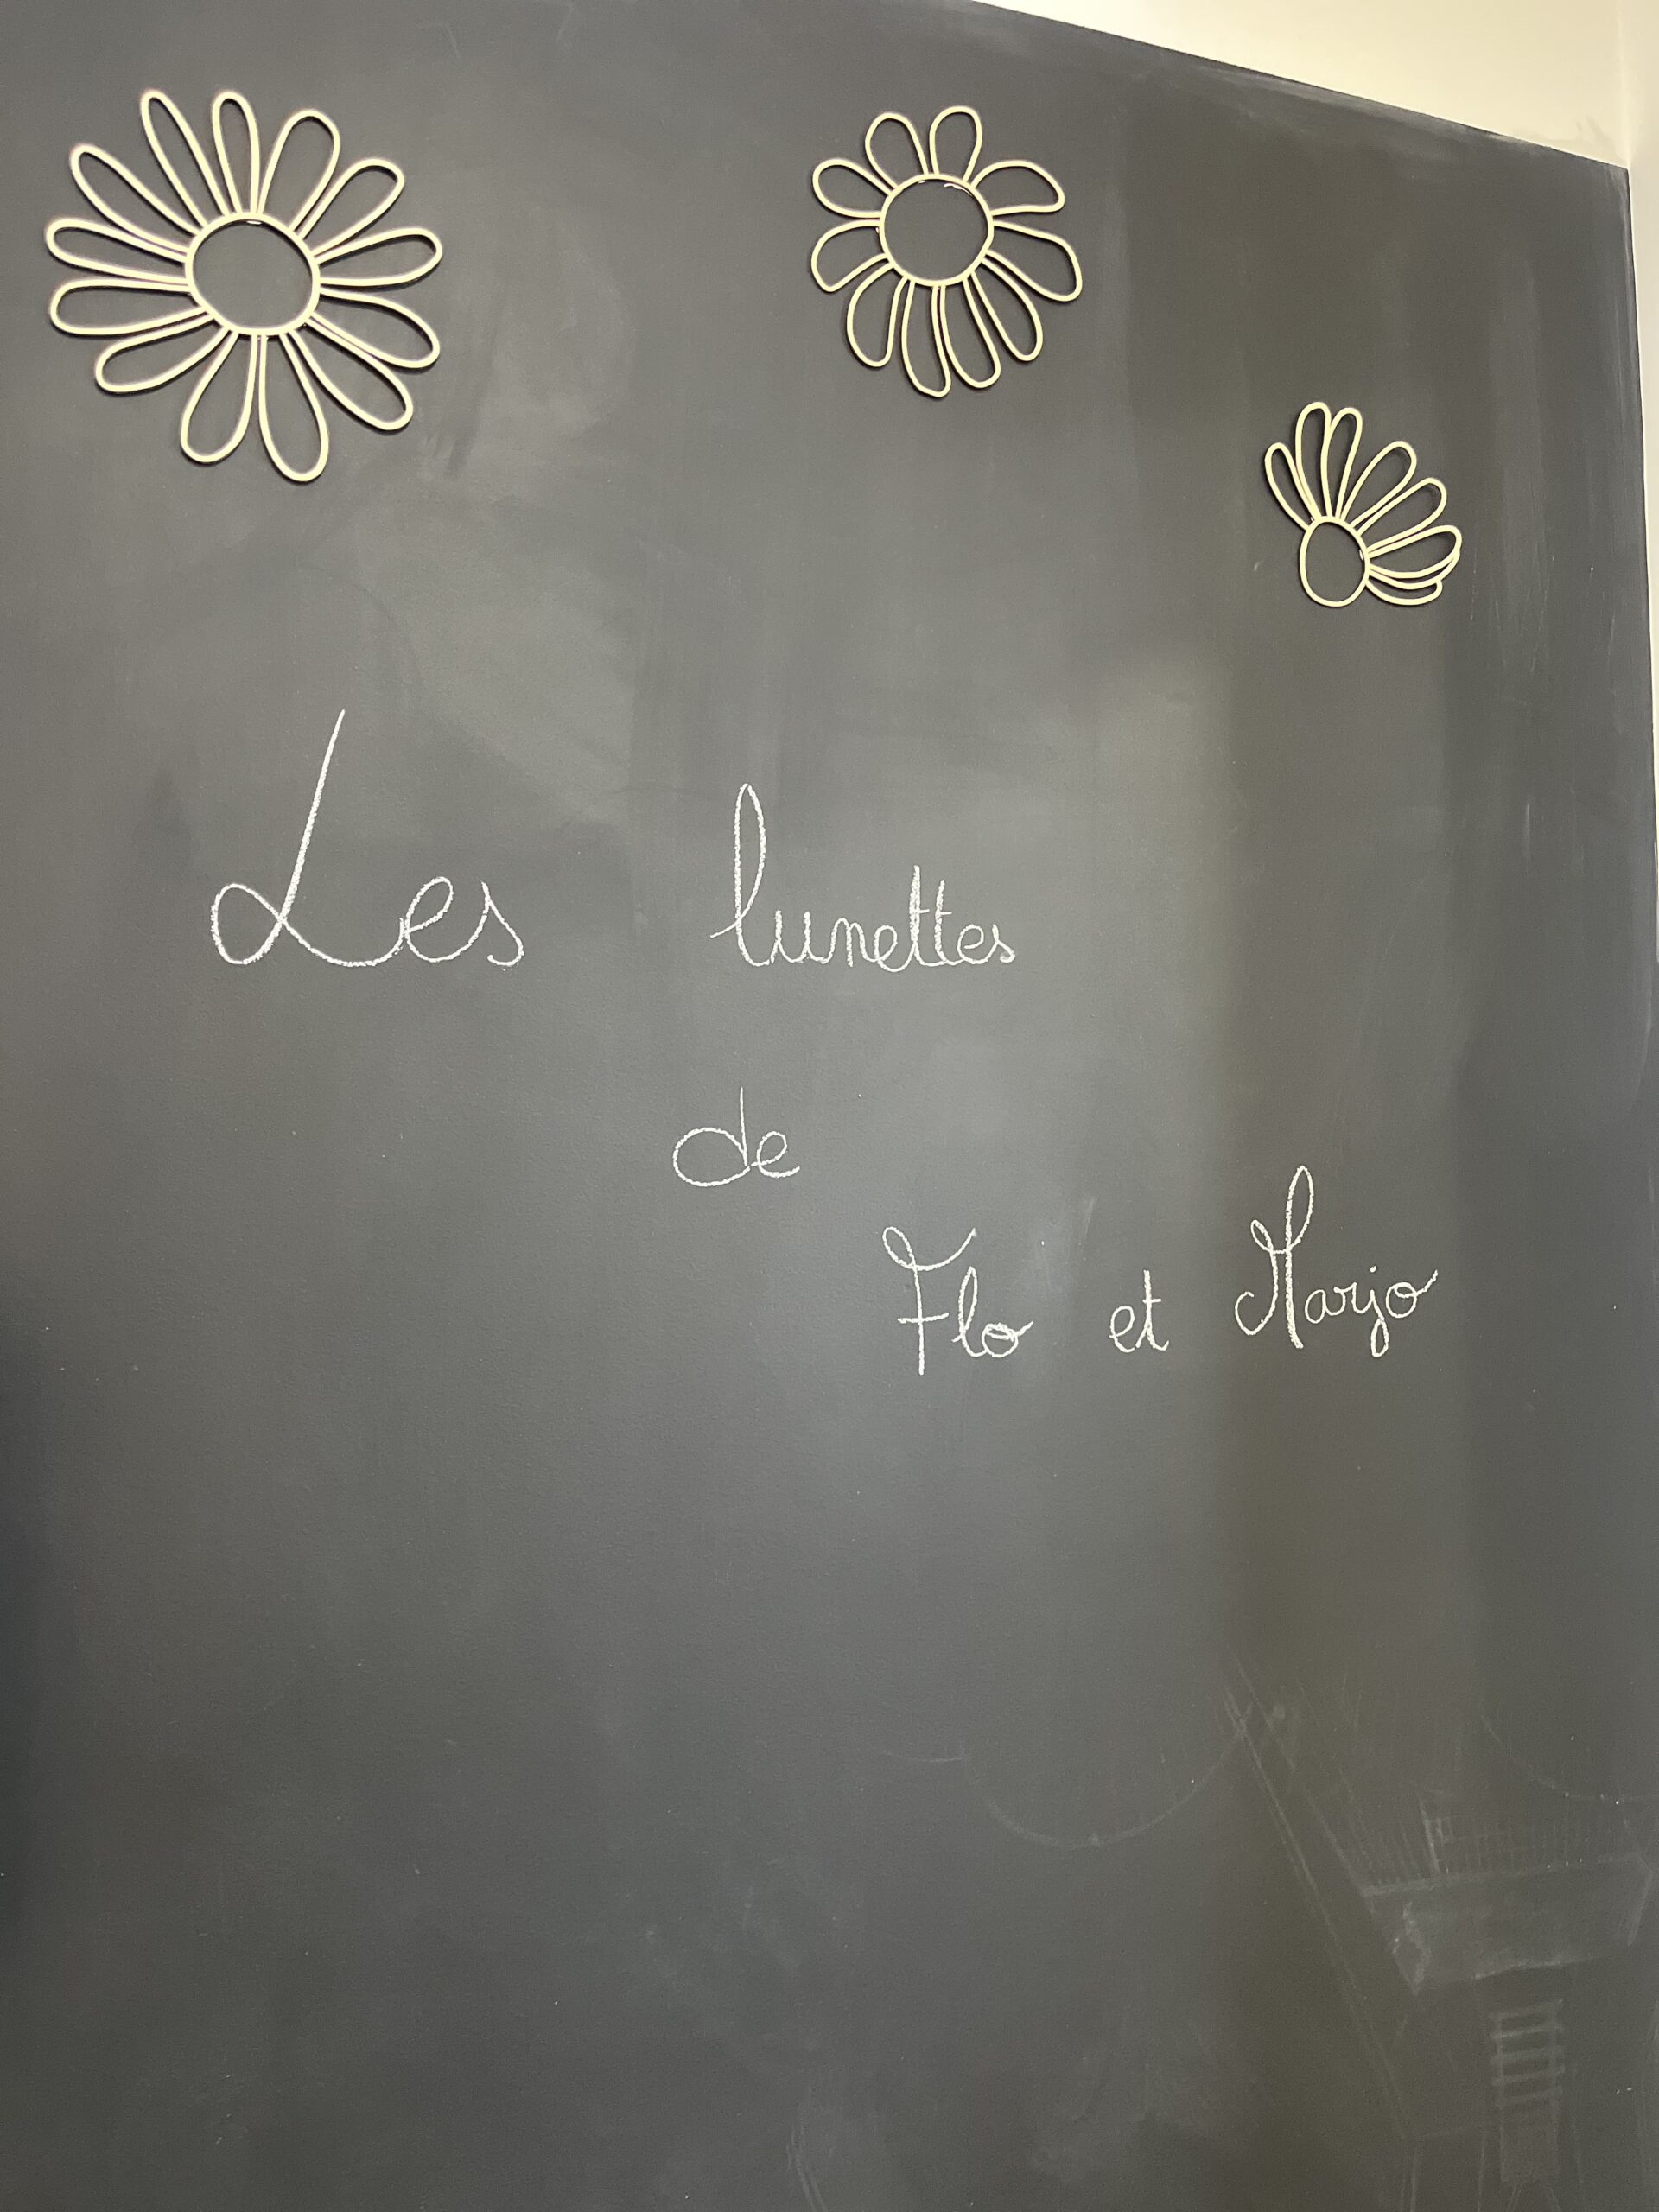 Les lunettes
de
Flo et Marjo